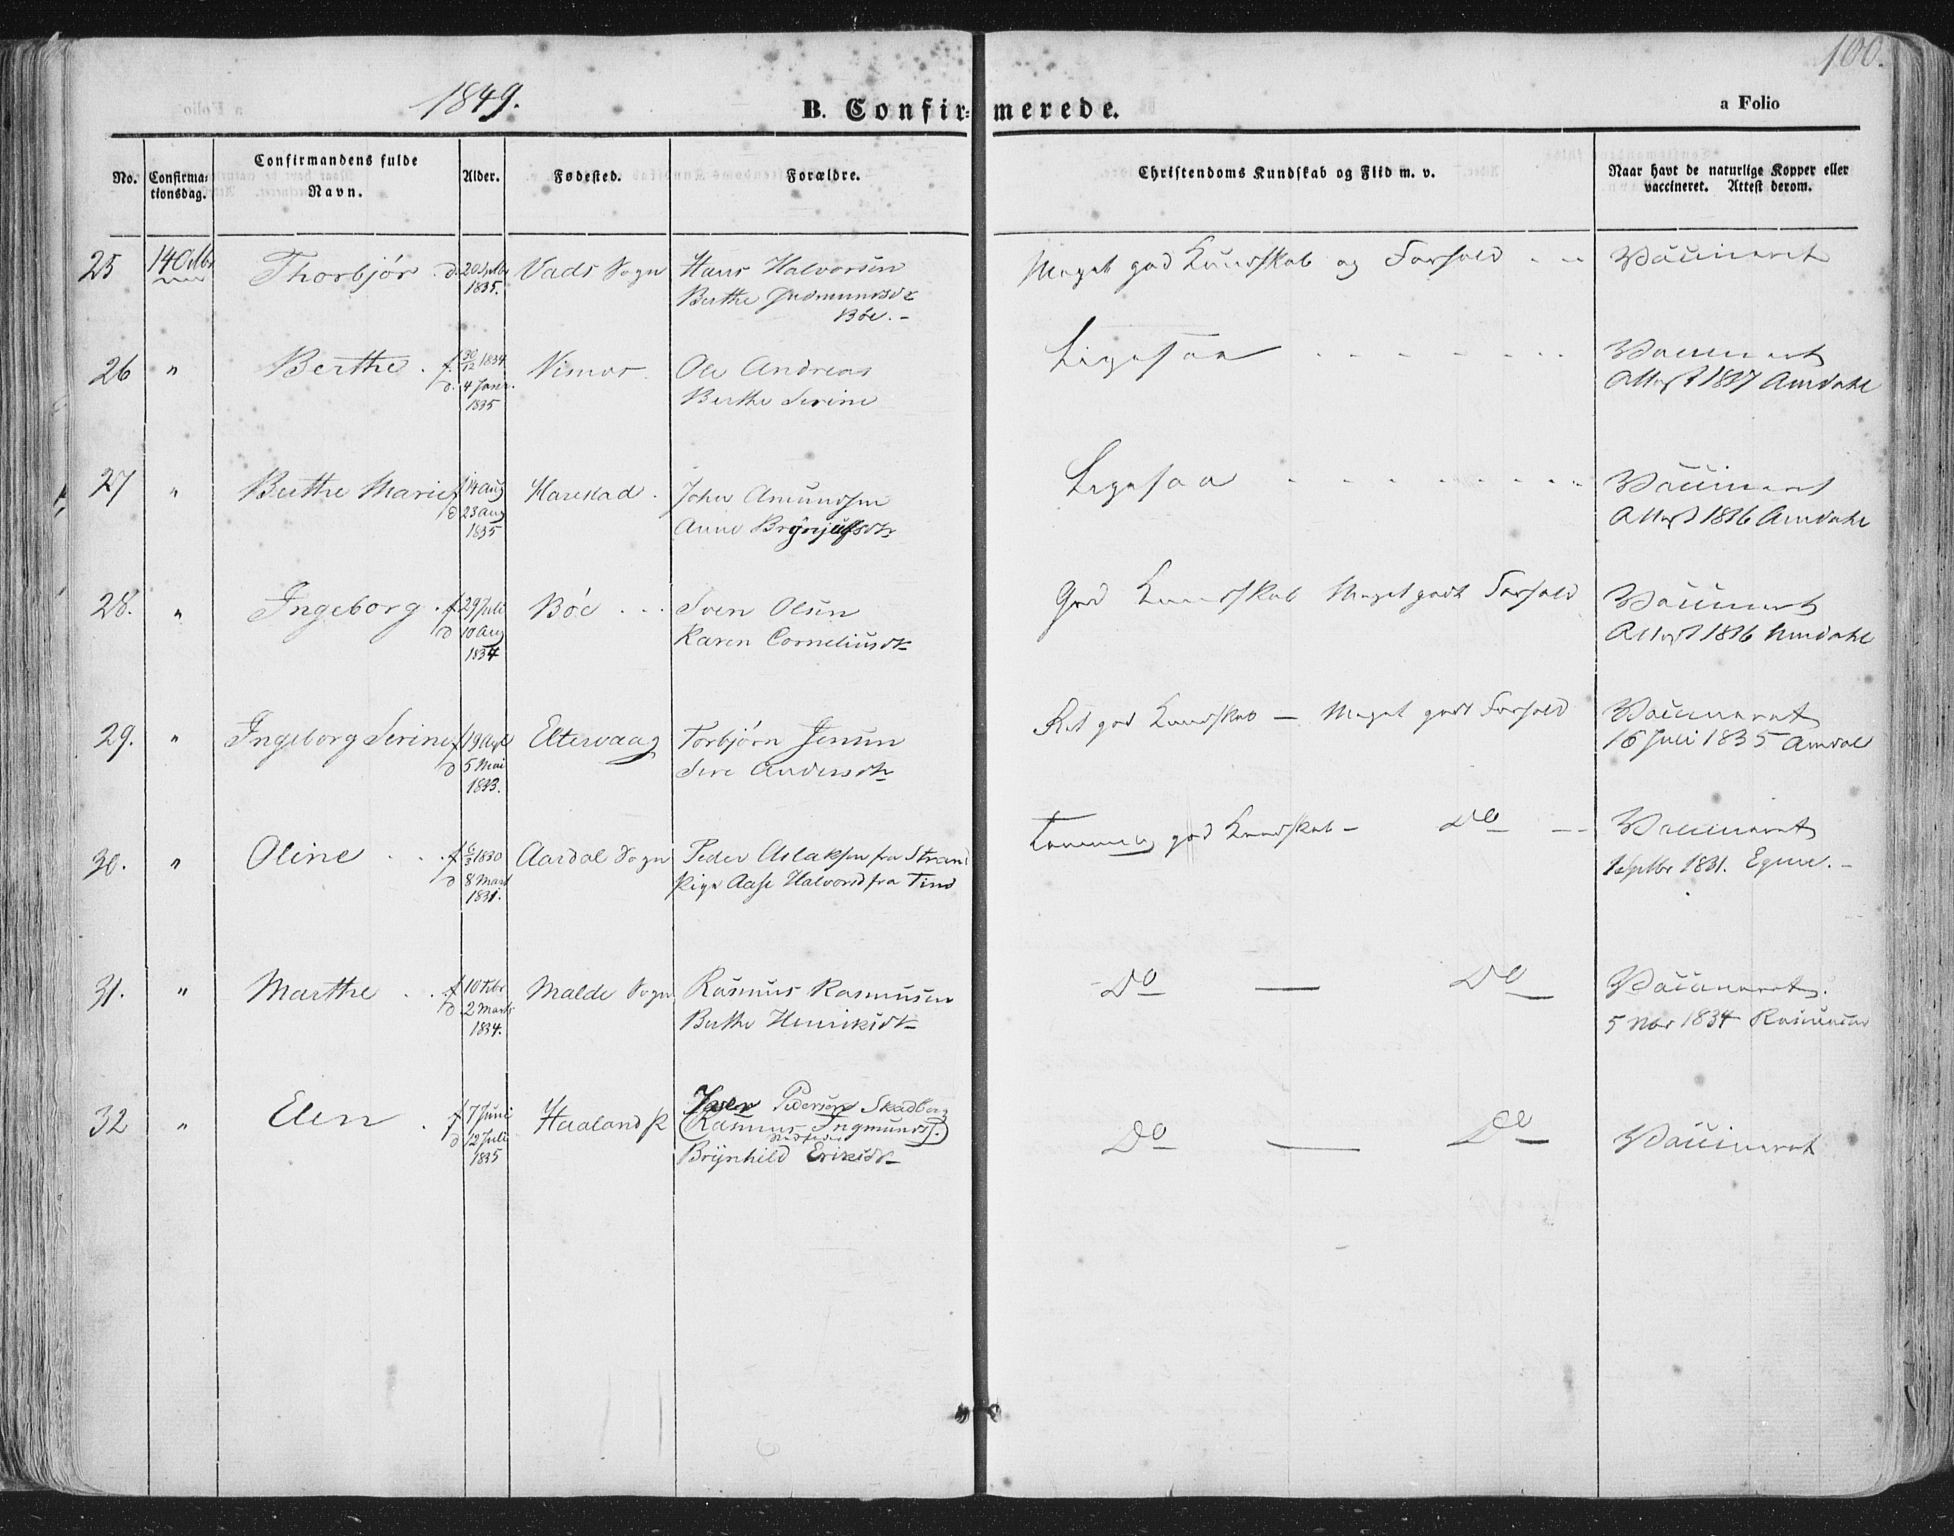 100.
1849.
B. Confir=merede.
a Folio
No.
Confirma=
tionsdag.
Confirmandens fulde
Navn.
Alder.
Fødested.
Forældre.
Christendoms Kundskab og Flid m. v.
Naar havt de naturlige Kopper eller
vaccineret. Attest derom.
25 14 Octbr Thorbjør d. 20 1835. Vads Sogn Hans Halvorsen
Berthe Gudmundsdr
Bøe.
Meget god Kundskab og Forhold Vaccineret
26 " Berthe f. 30/12 1834 d. 4 Janr. 1835 Vismar Ole Andreas
Berthe Serine
Ligesaa Vaccineret
Attest 1847 Amdahl
27 " Berthe Marie f 14 Aug d 23 Aug 1835 Harestad John Amundsen
Anne Brynjulfsdtr
Ligesaa Vaccineret
Attest 1846 Amdahl
28. " Ingeborg f 29 Juli d 10 Aug 1834 Bøe Sven Olsen
Karen Corneliusdtr
God Kundskab Meget godt Forhold Vaccineret
Attest 1846 Amdahl
29. " Ingeborg Serine f 19 Apl d 5 Mai 1833. Eltervaag Torbjørn Jensen
Sire Andersdtr
Ret god Kundskab — Meget godt Forhold Vaccineret
16 Juli 1835 Amdal
30. " Oline f 6/3 1830 d 8 Mart 1831. Aardal Sogn Peder Aslaksen fra Strand
Pige Aase Halvorsd fra Tind
Temmelig god Kundskab — Do Vaccineret
1 Septbr 1831.
31. " Marthe f 10 Febr d. 2 Marts 1834. Malde Sogn Rasmus Rasmusen
Berthe Henriksdtr
Do — Do Vaccineret.
5 Nbr 1834 Rasmusen
32 " Elen f 7 Juni d 12 Juli 1835 Haaland P Iver Pedersen Skadberg
(Rasmus Ingmunds.)
Brynhild Eriksdtr
Do — Do Vaccineret